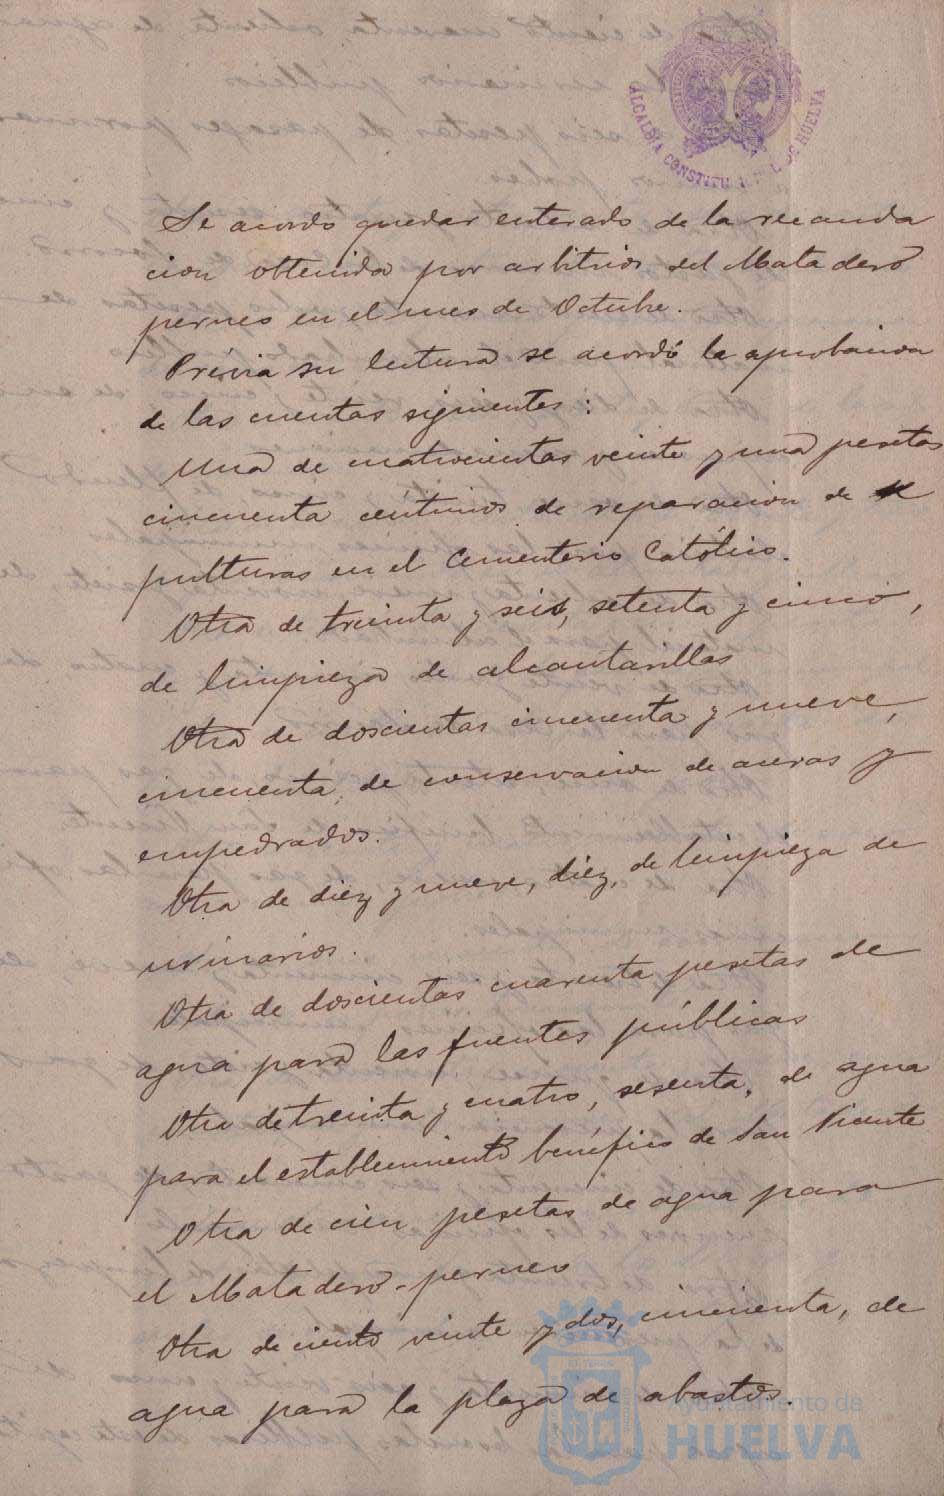 ALCALDIA CONSTITU L DE HUELVA
Se acordo quedar enterado de la recauda
cion obtenida por arbitrios del Matadero
perneo en el mes de Octubre.
Prévia su lectura se acordó la aprobacion
de las cuentas siguientes:
Una de cuatrocientas veinte y una pesetas
cincuenta céntimos de reparacion de se
pulturas en el Cementerio Católico.
Otra de treinta y seis, setenta y cinco,
de limpieza de alcantarillas
Otra de doscientas cincuenta y nueve,
cincuenta, de conservacion de aceras y
empedrados.
Otra de diez y nueve, diez, de limpieza de
urinarios.
Otra de doscientas cuarenta pesetas de
agua para las fuentes públicas
Otra de treinta y cuatro, sesenta, de agua
para el establecimiento benéfico de San Vicente
Otra de cien pesetas de agua para
el Matadero-perneo
Otra de ciento veinte y dos, cincuenta, de
agua para la plaza de abastos.
Ayuntamiento de
HUELVA